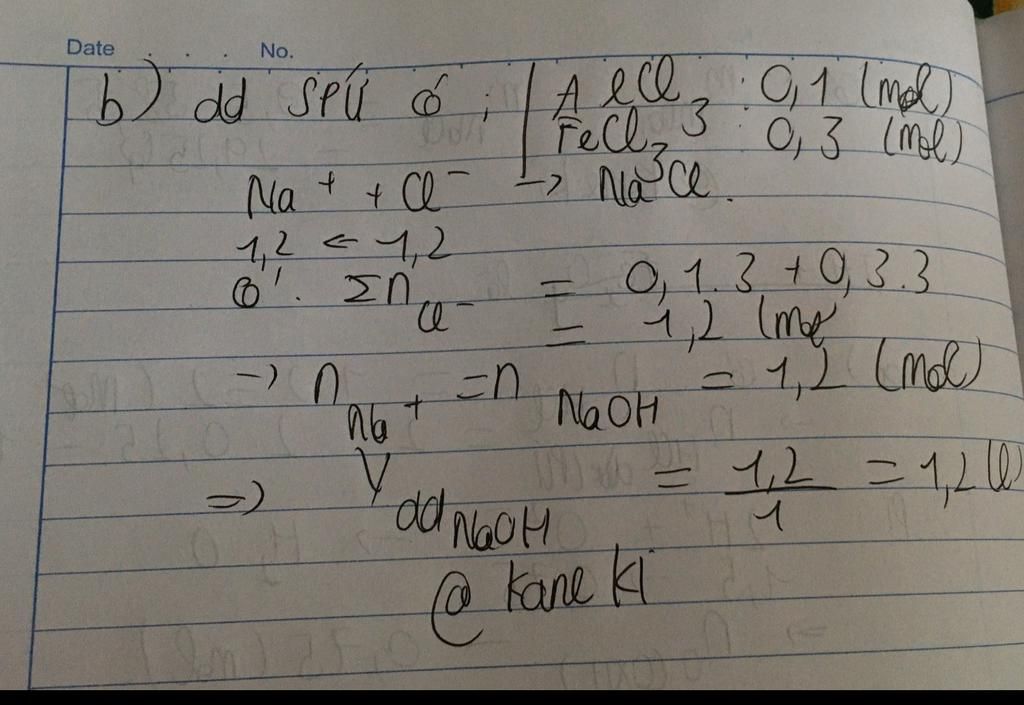 Date . . . . No.
b) dd SPƯ có ; | AlCl3 : 0,1 (mol)
FeCl3 : 0,3 (mol)
Na+ + Cl- -> NaCl.
1,2 <- 1,2
Có: Σn Cl- = 0,1.3 + 0,3.3
= 1,2 (mol
-> n Na+ = n NaOH = 1,2 (mol)
=> V dd NaOH = 1,2/1 = 1,2 (l)
@ Kane Ki